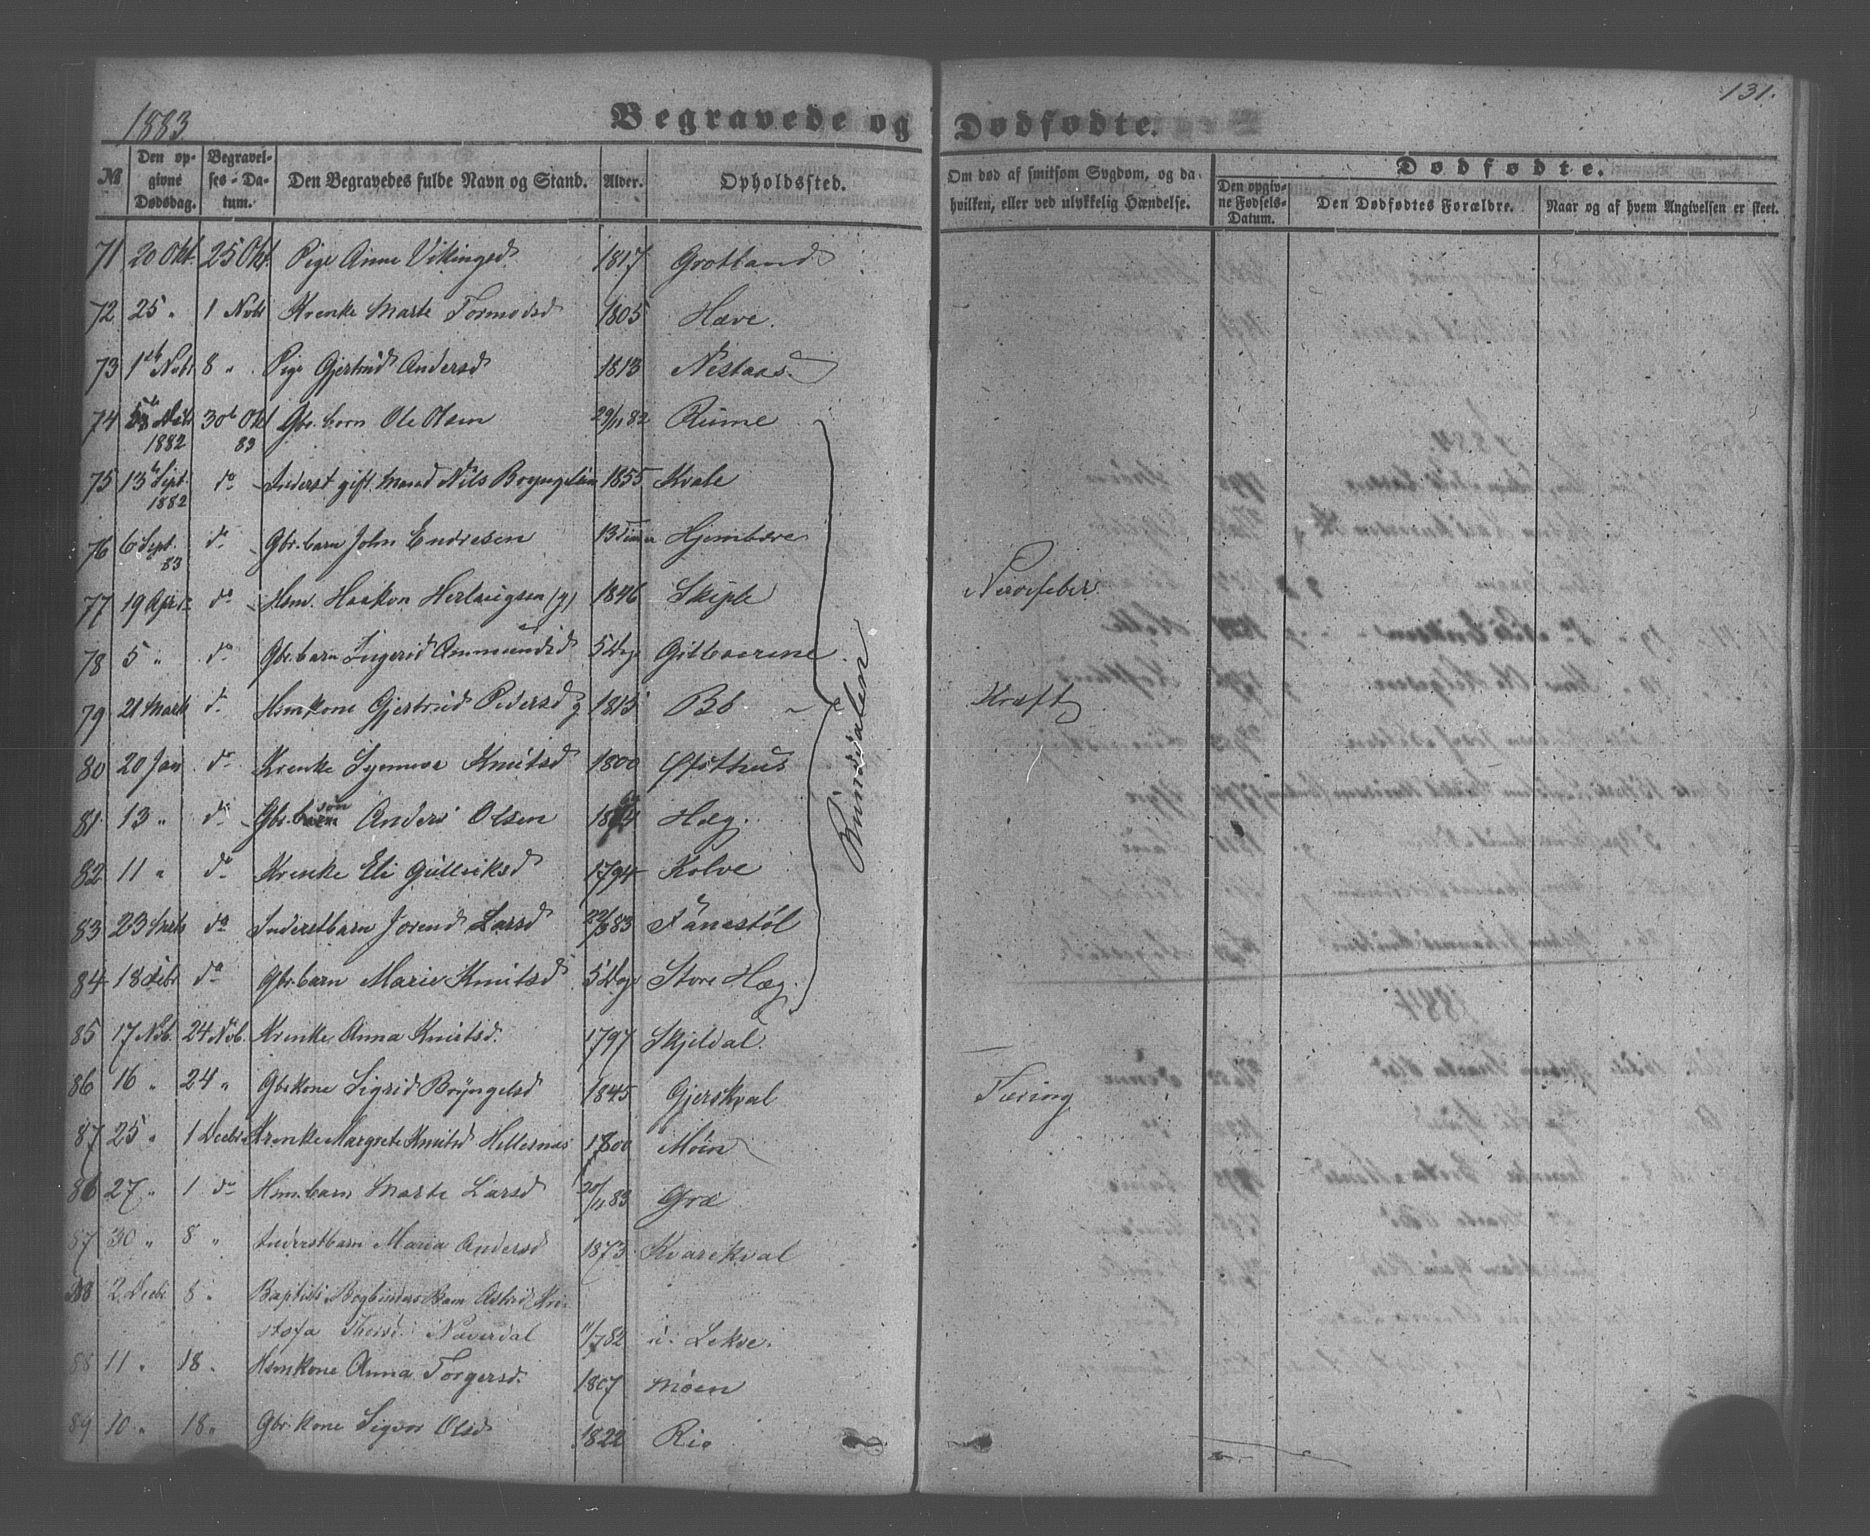 131.
1883
Begravede og Dødfødte.
№ Den opgivne Dødsdag. Begravelses-Datum. Den Begravedes fulde Navn og Stand. Alder. Opholdssted. Om død af smitsom Sygdom, og da hvilken, eller ved ulykkelig Hændelse. Dødfødte. Den opgivne Fødsels-Datum. Den Dødfødtes Forældre. Naar og af hvem Angivelsen er skeet.
71 20 Okt. 25 Okt. Pige Anna Vikingsd. 1817 Grotland
72 25 " 1 Nvbr Krenke Marte Tormodsd 1805 Hæve.
73 1 Nvbr 8 " Pige Gjertrud Andersd 1813 Nestaas
74 1882 30 Okt 83 Gbr. barn Ole Olsen 29/11 82 Rume
75 13 Sept. 1882 do Inderst gift Mand Nils Bryngelsen 1855 Kvale
76 6 Sept. 83 do Gbr. barn John Endresen 13 Timer Hjembære
77 19 April do Hsm. Haakon Herlaugsen (g) 1846 Skiple Nervefeber
78 5 " do Gbr. barn Ingerid Ammundsd 5 Dage Gitleverine
79 21 Marts do Hsmkone Gjertrud Pedersd g 1815 Bö Kræft
80 20 Jan do Krenke Synneva Knutsd 1800 Øfsthus
81 13 " do Gbr. son Anders Olsen Hæg.
82 11 " do Krenke Eli Gulleiksd 1794 Kolve
83 23 Marts do Inderstbarn Jorend Larsd 22/3 83 Fánestöl
84 18 Febr do Gbr. barn Marie Knutsd 5 Dage Store Hæg.
Rundalen
85 17 Nvb. 24 Nvb. Krenke Anna Knutsd. 1797 Skjeldal.
86 16 " 24 " Gbrkone Sigrid Bryngelsd 1845 Gjerskval Tæring
87 25 " 1 Decbr Krenke Margrete Knutsd Hellesnæs 1800 Möin
86 27 " 1 do Hsm. barn Marte Larsd 20/11 83 Græ
87 30 " 8 " Inderstbarn Maria Andersd 1873 Kvarekval
88 2 Decbr 8 " Baptist Bogbinders Barn Astrid Kri-
stofa Theisd. Naverdal 11/7 82 u. Lekve.
88 11 " 18 " Hsmkone Anna Torgersd. 1807 Möen
89 10 " 18 " Gbr. kone Sigvor Olsd 1822 Rio